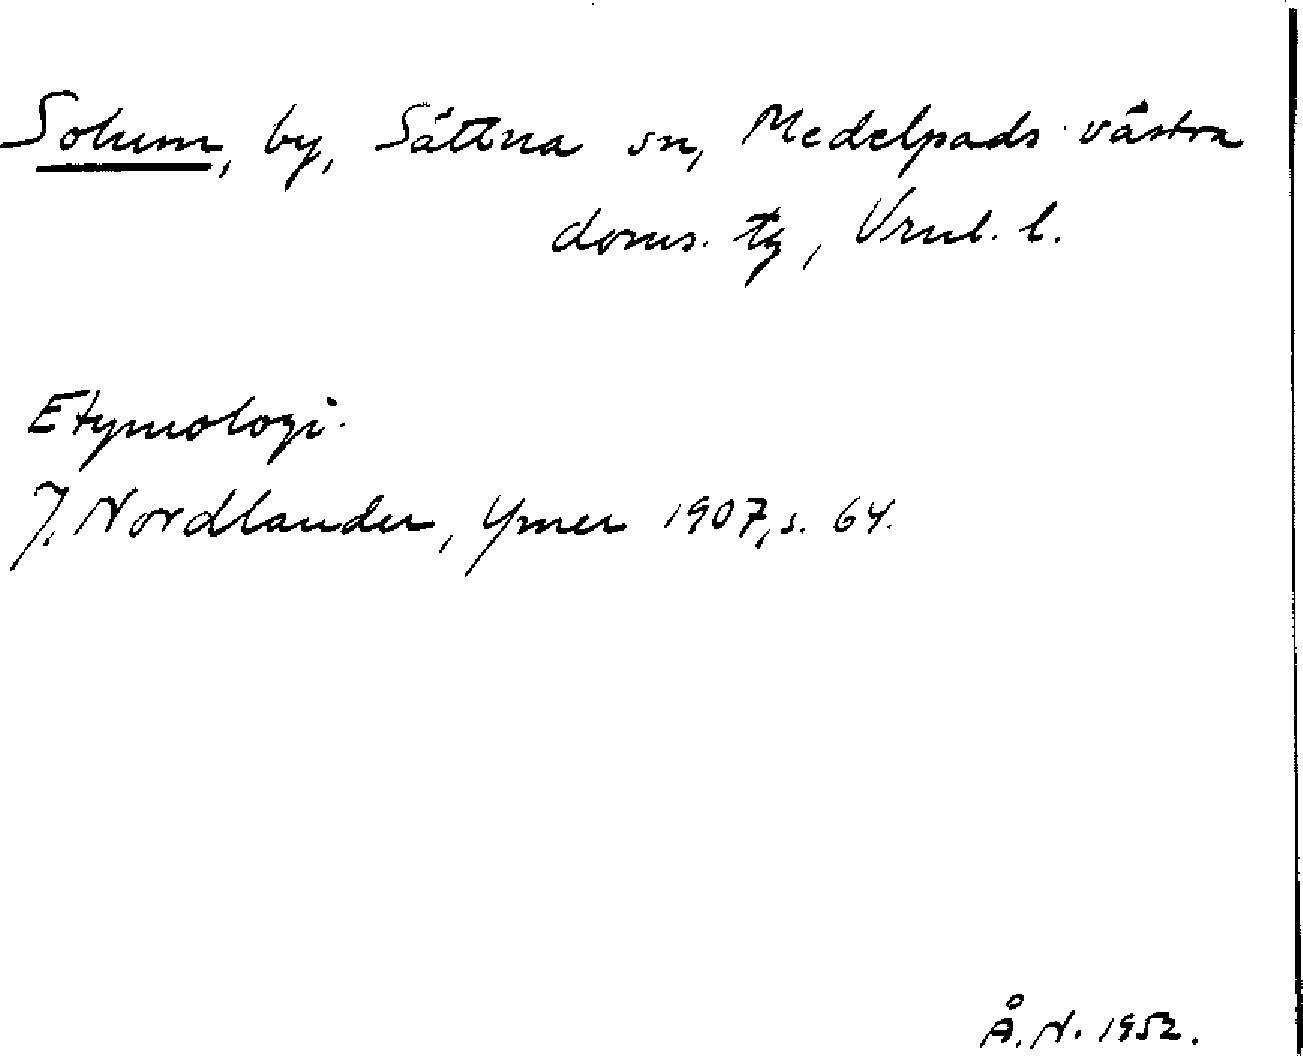 Solum, by, Sättna sn, Medelpads västra
doms. tg, Vrnl. l.
Etymologi.
J. Nordlander, Ymer 1907, s. 64.
Å. N. 1952.